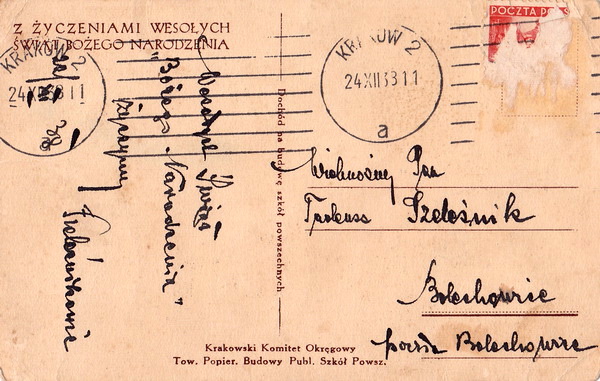 Z ŻYCZENIAMI WESOŁYCH
ŚWIĄT BOŻEGO NARODZENIA
KRAKÓW 2
24 XII 38 11
Wesołych Świąt
"Bożego Narodzenia"
życzymy
Szeleźnikowie
Dochód na budowę szkół powszechnych
KRAKÓW 2
24 XII 38 11
a
POCZTA
Wielmożny Pan
Tadeusz Szeleźnik
Bolechowice
poczta Bolechowice
Krakowski Komitet Okręgowy
Tow. Popier. Budowy Publ. Szkół Powsz.